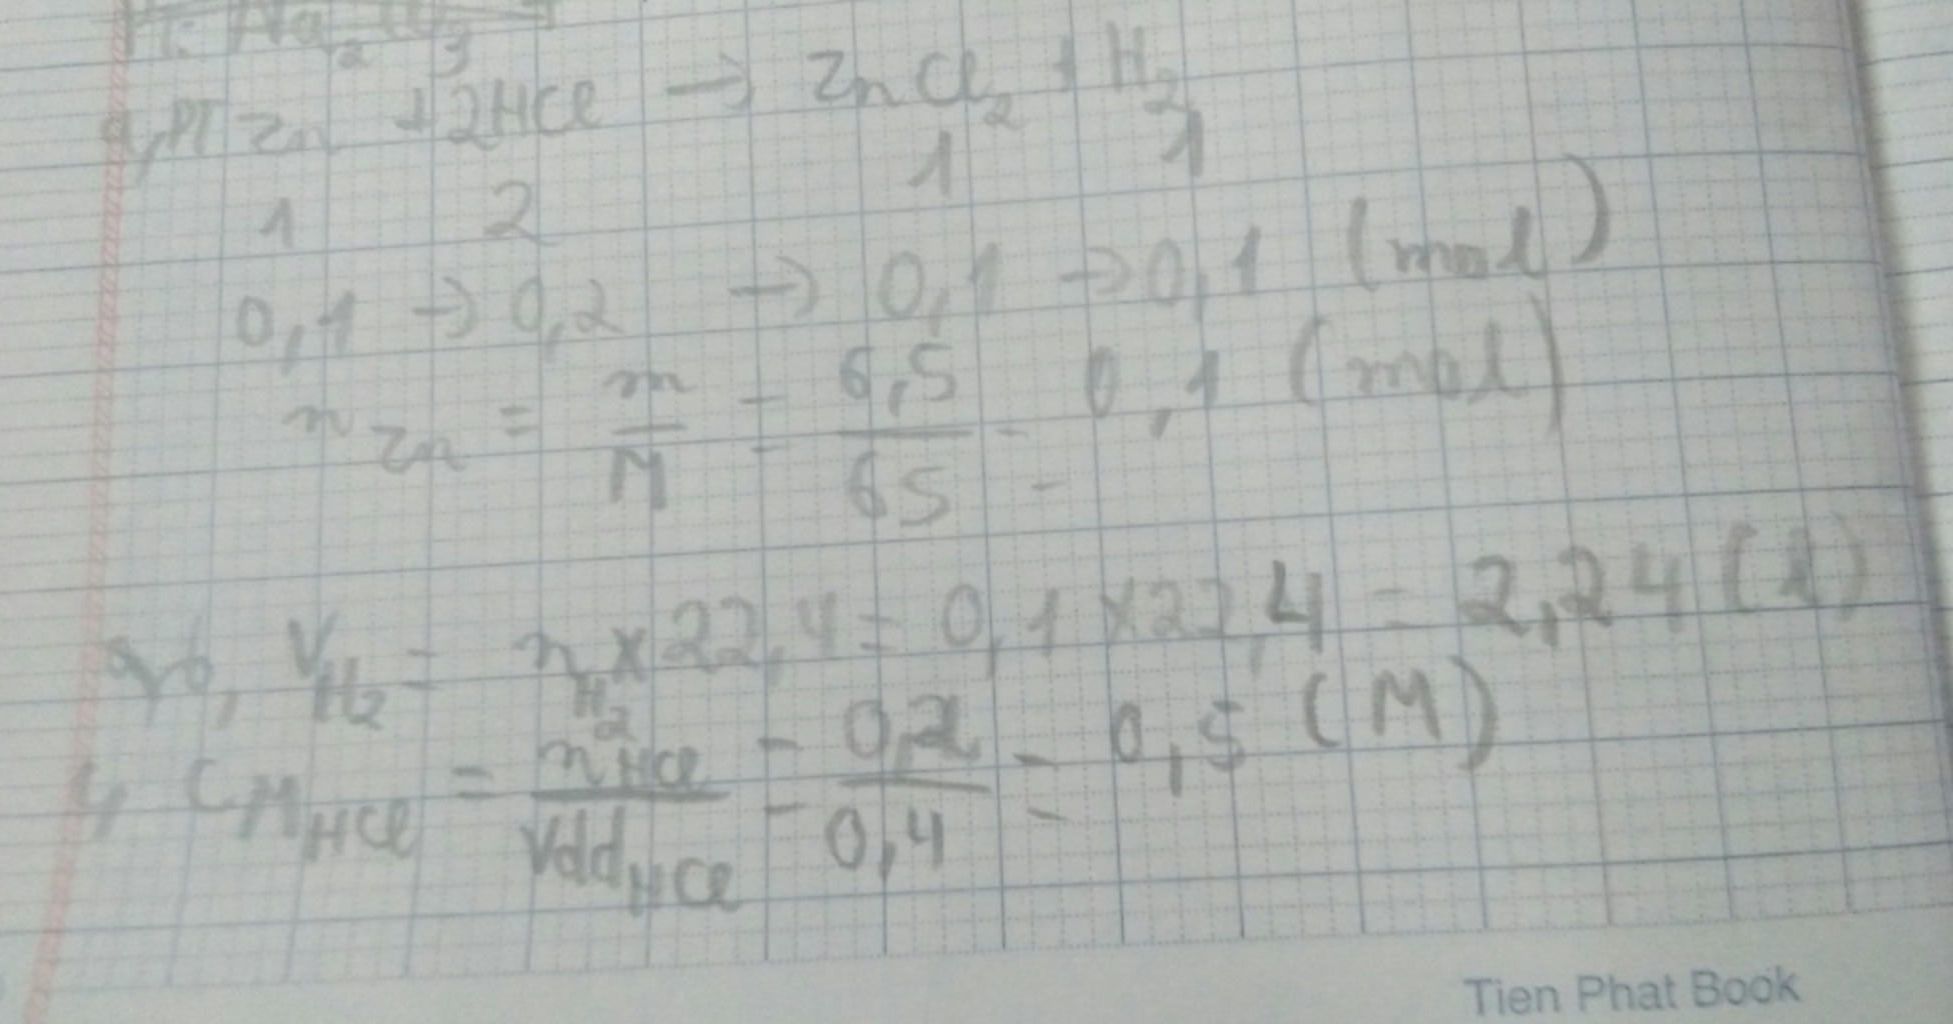 Na2CO3
a, PT Zn + 2HCl → ZnCl2 + H2
1 2 1 1
0,1 → 0,2 → 0,1 → 0,1 (mol)
nZn = m/M = 6,5/65 = 0,1 (mol)
b, VH2 = nH2 x 22,4 = 0,1 x 22,4 = 2,24 (l)
CMHCl = nHCl/VddHCl = 0,2/0,4 = 0,5 (M)
Tien Phat Book